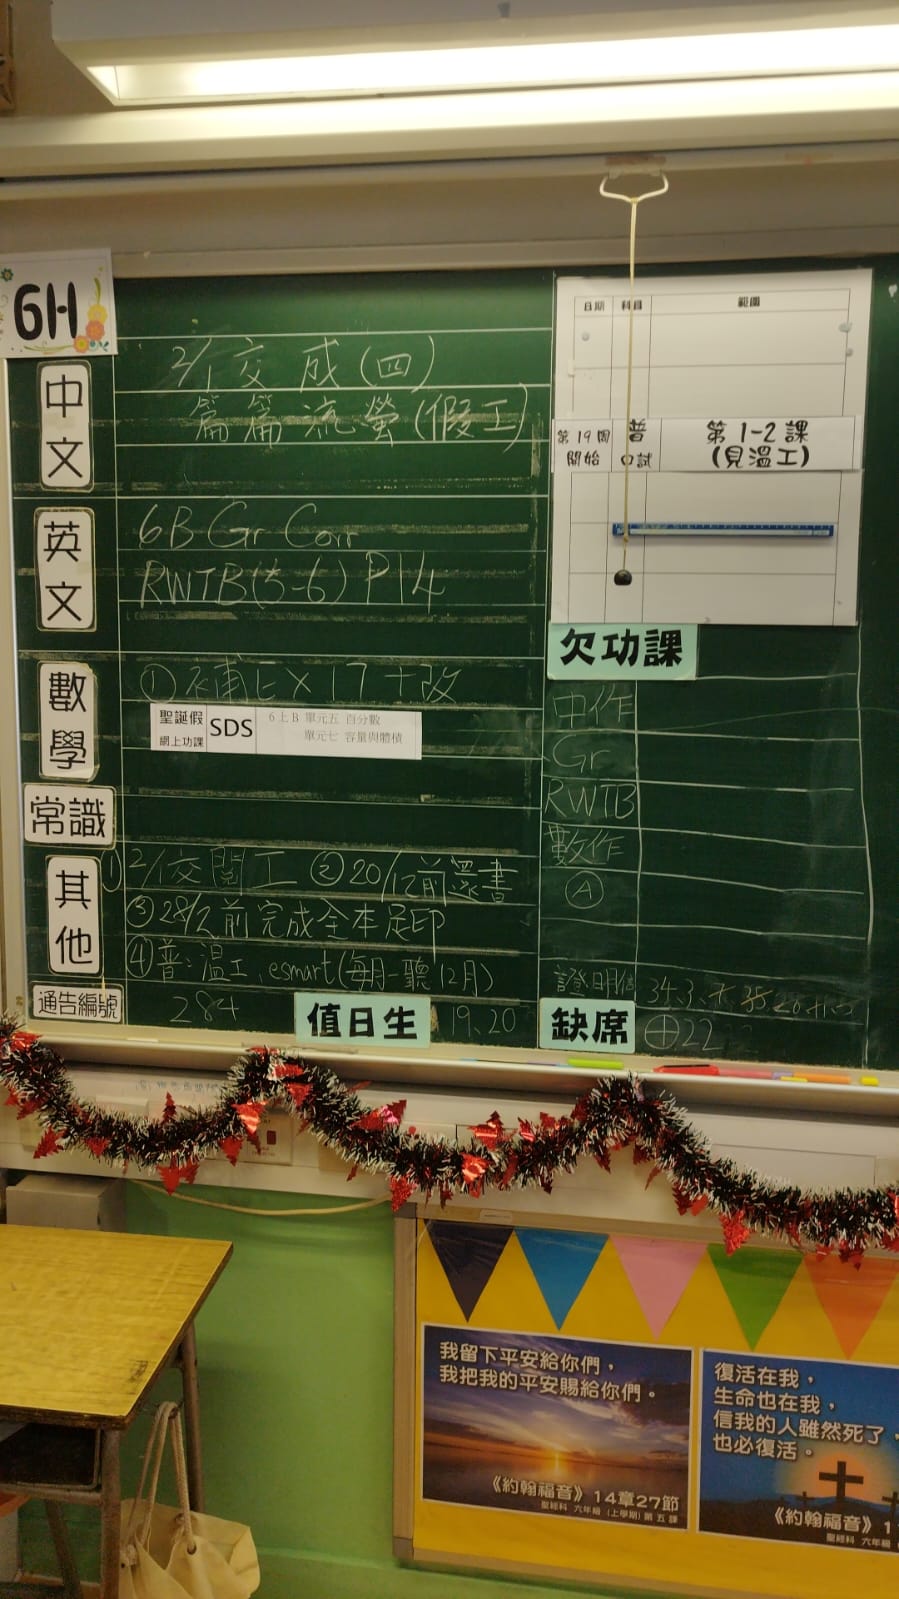 6H
中文
2/1 交 成(四)
篇篇流螢(假工)
英文
6B Gr Corr
RWTB(5-6) P14
數學
① 補EX17+改
聖誕假
網上功課
SDS
6上B 單元五 百分數
單元七 容量與體積
常識
其他
① 2/1交閱工 ②20/12前還書
③ 28/2前完成全本足印
④ 普:溫工、esmart(每月一聽12月)
通告編號
284
值日生
19、20
日期 科目 範圍
第19周開始
普口試
第1-2課
(見溫工)
欠功課
中作
Gr
RWTB
數作
Ⓐ
證明信
缺席
22
我留下平安給你們，
我把我的平安賜給你們。
《約翰福音》14章27節
聖經科 六年級 (上學期) 第五課
復活在我，
生命也在我，
信我的人雖然死了，
也必復活。
《約翰福音》1
聖經科 六年級